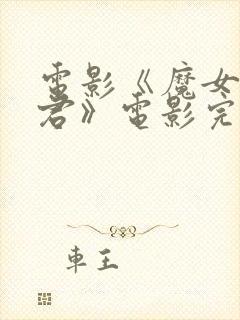 電影《魔女
君》電影完
車王